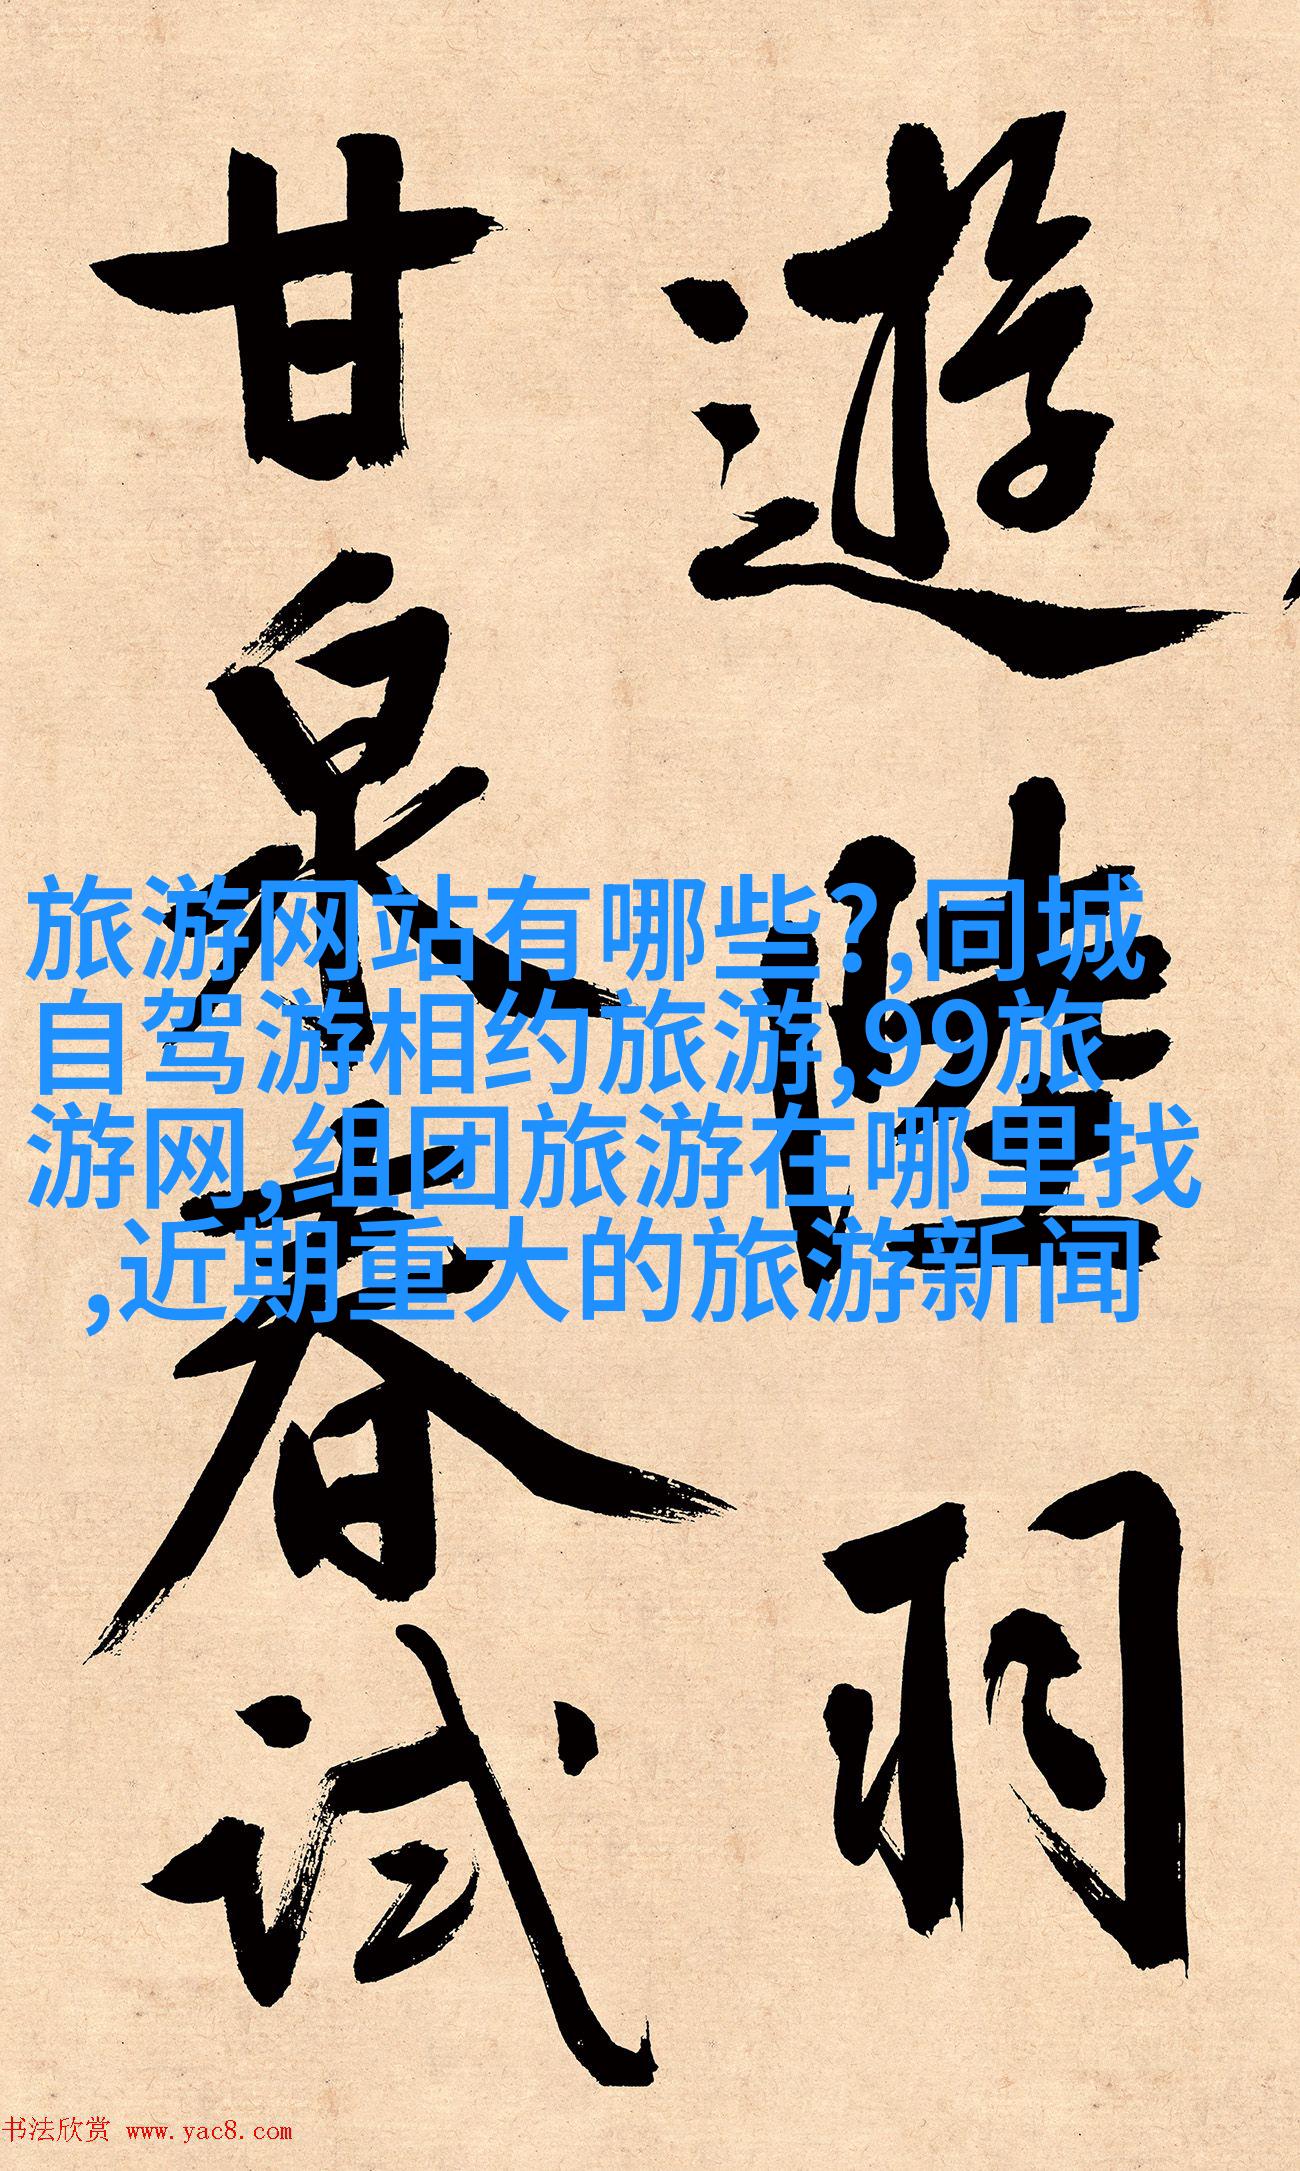 遊陸羽
甘泉春試
旅游网站有哪些?,同城
自驾游相约旅游,99旅
游网,组团旅游在哪里找
,近期重大的旅游新闻
书法欣赏 www.yac8.com